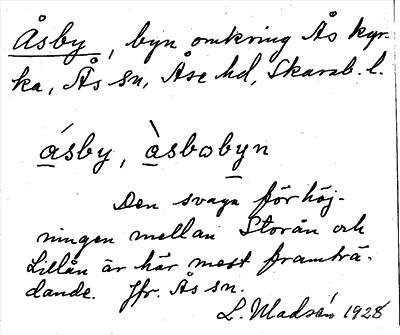 Åsby, byn omkring Ås kyr-
ka, Ås sn, Åse hd, Skarab. l.
ásby, àsbobyn
Den svaga förhöj-
ningen mellan Storån och
Lillån är här mest framträ-
dande. Jfr. Ås sn.
L. Madsén 1928